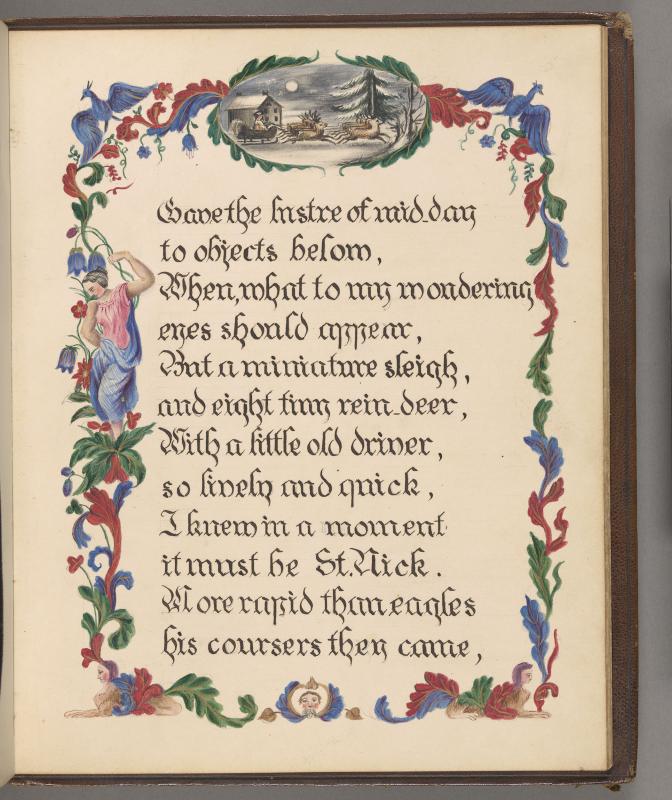 Gave the lustre of mid-day
to objects below,
When, what to my wondering
eyes should appear,
But a miniature sleigh,
and eight tiny rein-deer,
With a little old driver,
so lively and quick,
I knew in a moment
it must be St. Nick.
More rapid than eagles
his coursers they came,